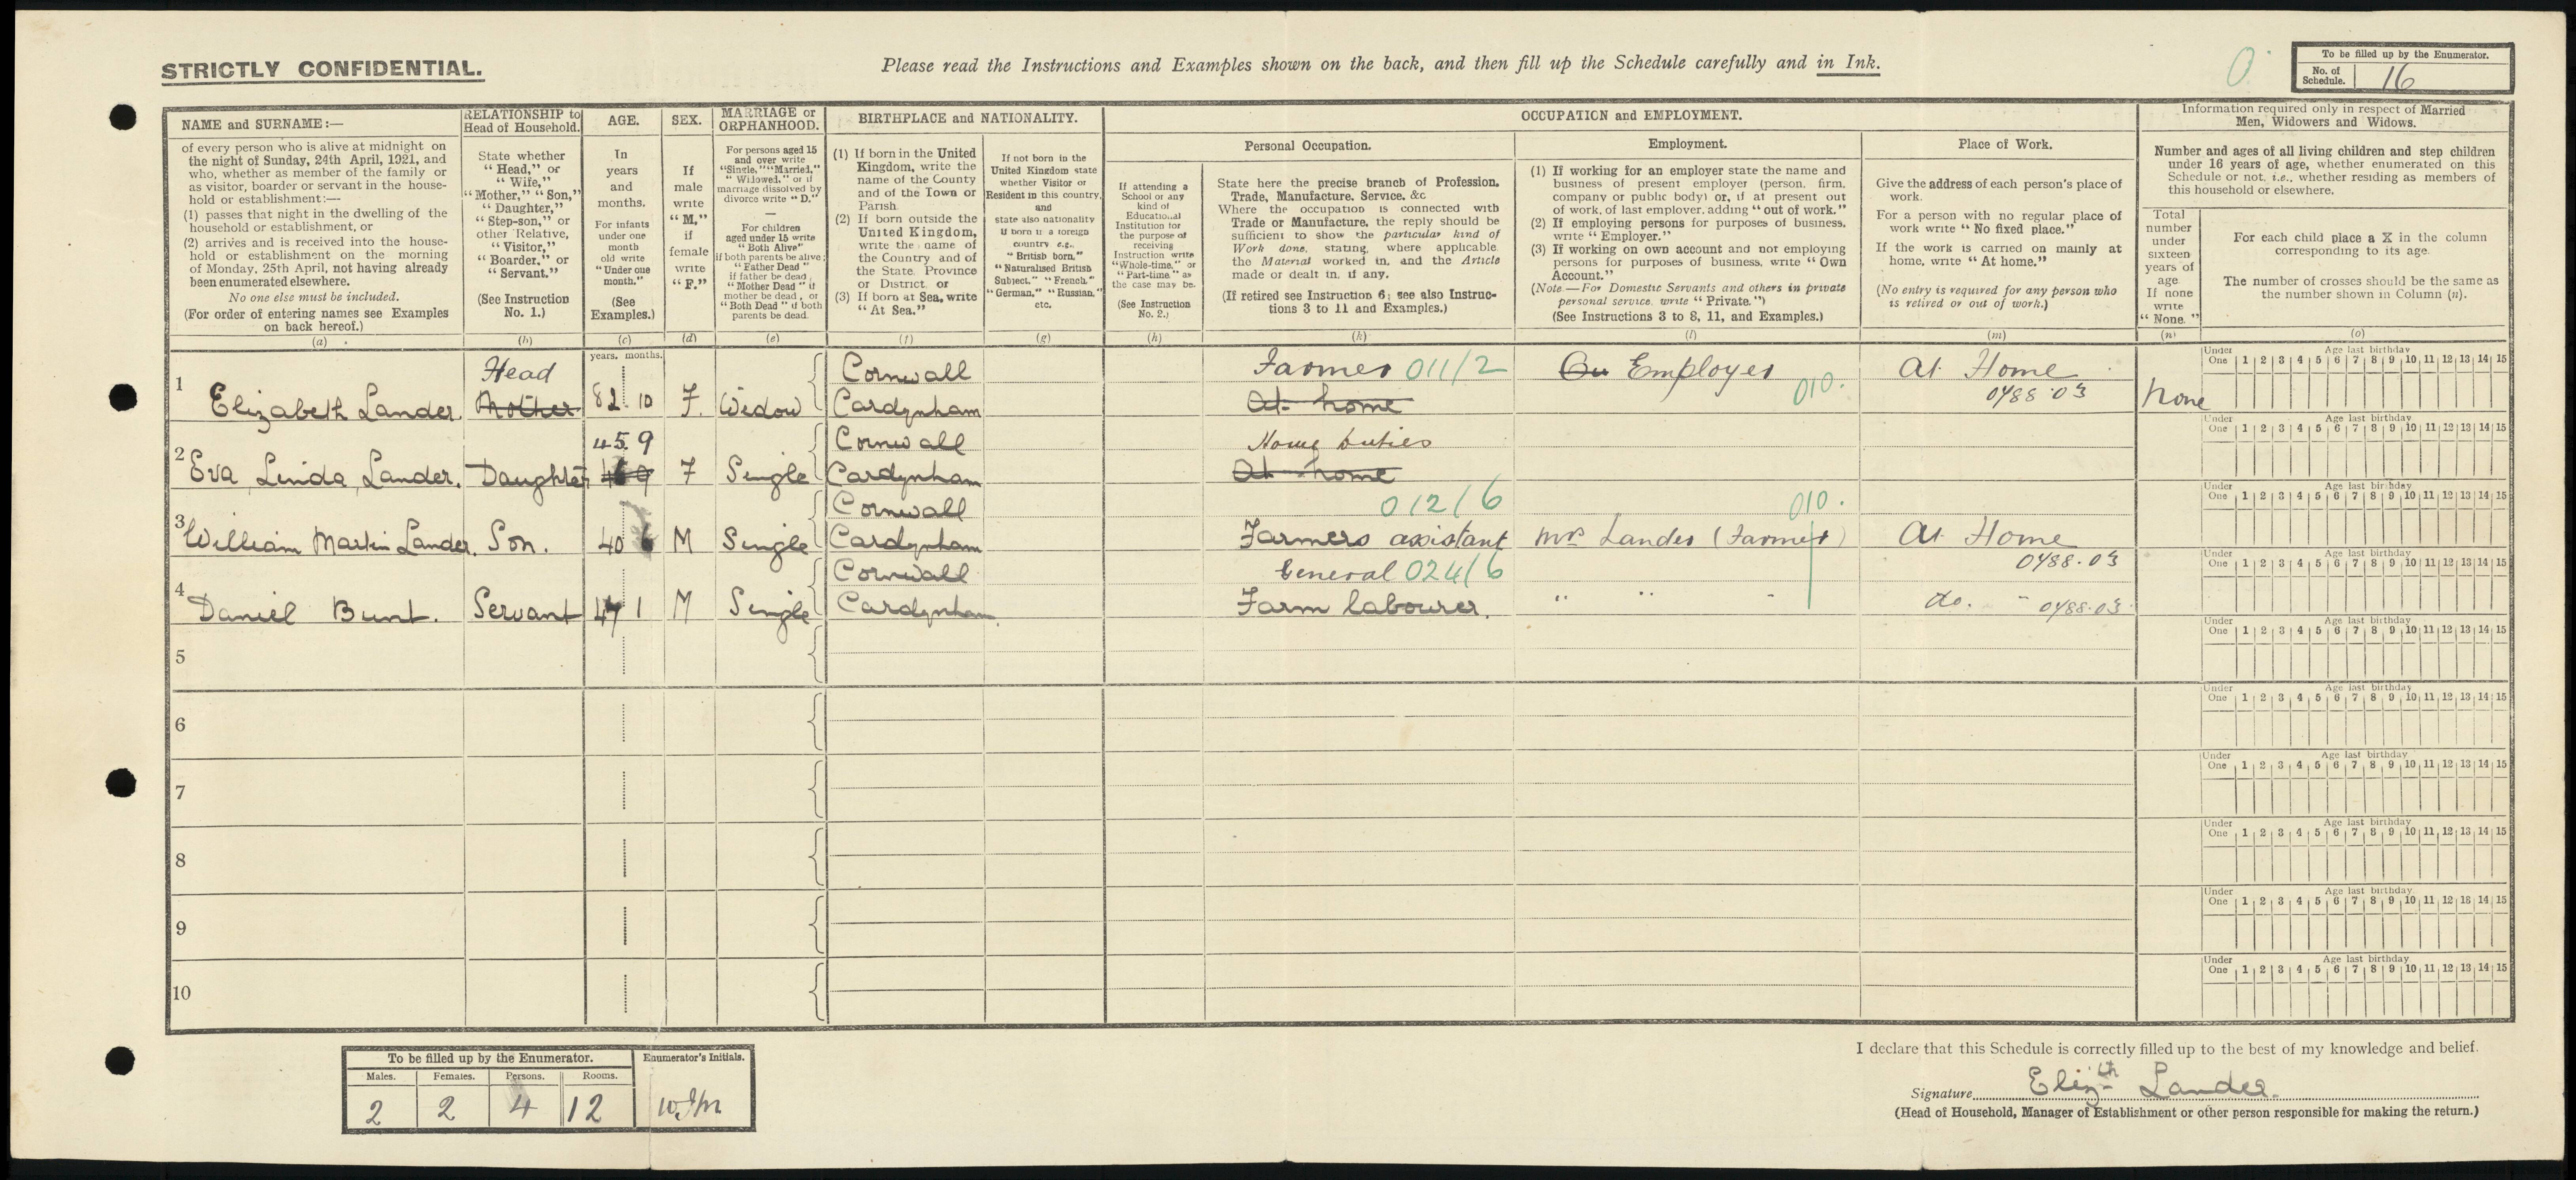 STRICTLY CONFIDENTIAL.
Please read the Instructions and Examples shown on the back, and then fill up the Schedule carefully and in Ink.
0.
To be filled up by the Enumerator.
No. of Schedule. 16
NAME and SURNAME:—
of every person who is alive at midnight on
the night of Sunday, 24th April, 1921, and
who, whether as member of the family or
as visitor, boarder or servant in the house-
hold or establishment:—
(1) passes that night in the dwelling of the
household or establishment, or
(2) arrives and is received into the house-
hold or establishment on the morning
of Monday, 25th April, not having already
been enumerated elsewhere.
No one else must be included.
(For order of entering names see Examples
on back hereof.)
(a)
RELATIONSHIP to
Head of Household.
State whether
"Head," or
"Wife,"
"Mother," "Son,"
"Daughter,"
"Step-son," or
other Relative,
"Visitor,"
"Boarder," or
"Servant."
(See Instruction
No. 1.)
(b)
AGE.
In
years
and
months.
For infants
under one
month
old write
"Under one
month."
(See
Examples.)
(c)
SEX.
If
male
write
"M,"
if
female
write
"F."
(d)
MARRIAGE or
ORPHANHOOD.
For persons aged 15
and over write
"Single," "Married,"
"Widowed," or if
marriage dissolved by
divorce write "D."
—
For children
aged under 15 write
"Both Alive"
if both parents be alive;
"Father Dead"
if father be dead,
"Mother Dead" if
mother be dead, or
"Both Dead" if both
parents be dead.
(e)
BIRTHPLACE and NATIONALITY.
(1) If born in the United
Kingdom, write the
name of the County
and of the Town or
Parish.
(2) If born outside the
United Kingdom,
write the name of
the Country and of
the State, Province
or District, or
(3) If born at Sea, write
"At Sea."
(f)
If not born in the
United Kingdom state
whether Visitor or
Resident in this country,
and
state also nationality
if born in a foreign
country e.g.,
"British born,"
"Naturalised British
Subject," "French,"
"German," "Russian,"
etc.
(g)
OCCUPATION and EMPLOYMENT.
If attending a
School or any
kind of
Educational
Institution for
the purpose of
receiving
Instruction write
"Whole-time," or
"Part-time," as
the case may be.
(See Instruction
No. 2.)
(h)
Personal Occupation.
State here the precise branch of Profession,
Trade, Manufacture, Service, &c
Where the occupation is connected with
Trade or Manufacture, the reply should be
sufficient to show the particular kind of
Work done, stating, where applicable
the Material worked in, and the Article
made or dealt in, if any.
(If retired see Instruction 6; see also Instruc-
tions 3 to 11 and Examples.)
(k)
Employment.
(1) If working for an employer state the name and
business of present employer (person, firm,
company or public body) or, if at present out
of work, of last employer, adding "out of work."
(2) If employing persons for purposes of business,
write "Employer."
(3) If working on own account and not employing
persons for purposes of business, write "Own
Account."
(Note—For Domestic Servants and others in private
personal service, write "Private.")
(See Instructions 3 to 8, 11, and Examples.)
(l)
Place of Work.
Give the address of each person's place of
work.
For a person with no regular place of
work write "No fixed place."
If the work is carried on mainly at
home, write "At home."
(No entry is required for any person who
is retired or out of work.)
(m)
Information required only in respect of Married
Men, Widowers and Widows.
Number and ages of all living children and step children
under 16 years of age, whether enumerated on this
Schedule or not, i.e., whether residing as members of
this household or elsewhere.
Total
number
under
sixteen
years of
age
If none
write
"None."
(n)
For each child place a X in the column
corresponding to its age.
The number of crosses should be the same as
the number shown in Column (n).
(o)
years. months.
Under One Age last birthday 1 2 3 4 5 6 7 8 9 10 11 12 13 14 15
Head Cornwall Farmer 011/2 Employer At Home
1 Elizabeth Lander. Mother 82 10 F. Widow Cardynham At home 010. 0488·03 None
Under One Age last birthday 1 2 3 4 5 6 7 8 9 10 11 12 13 14 15
45 9 Cornwall Home duties
2 Eva Linda Lander. Daughter 9 F Single Cardynham At home
Under One Age last birthday 1 2 3 4 5 6 7 8 9 10 11 12 13 14 15
Cornwall 012/6 010.
3 William Martin Lander. Son. 40 6 M Single Cardynham Farmers assistant Mrs Lander (Farmer) At Home
Under One Age last birthday 1 2 3 4 5 6 7 8 9 10 11 12 13 14 15
Cornwall General 024/6 0488·03
4 Daniel Bunt. Servant 47 1 M Single Cardynham. Farm labourer. " " " do. " 0488·03
Under One Age last birthday 1 2 3 4 5 6 7 8 9 10 11 12 13 14 15
5
Under One Age last birthday 1 2 3 4 5 6 7 8 9 10 11 12 13 14 15
6
Under One Age last birthday 1 2 3 4 5 6 7 8 9 10 11 12 13 14 15
7
Under One Age last birthday 1 2 3 4 5 6 7 8 9 10 11 12 13 14 15
8
Under One Age last birthday 1 2 3 4 5 6 7 8 9 10 11 12 13 14 15
9
Under One Age last birthday 1 2 3 4 5 6 7 8 9 10 11 12 13 14 15
10
To be filled up by the Enumerator. Enumerator's Initials.
Males. Females. Persons. Rooms.
2 2 4 12
I declare that this Schedule is correctly filled up to the best of my knowledge and belief.
Signature Elizth Lander.
(Head of Household, Manager of Establishment or other person responsible for making the return.)